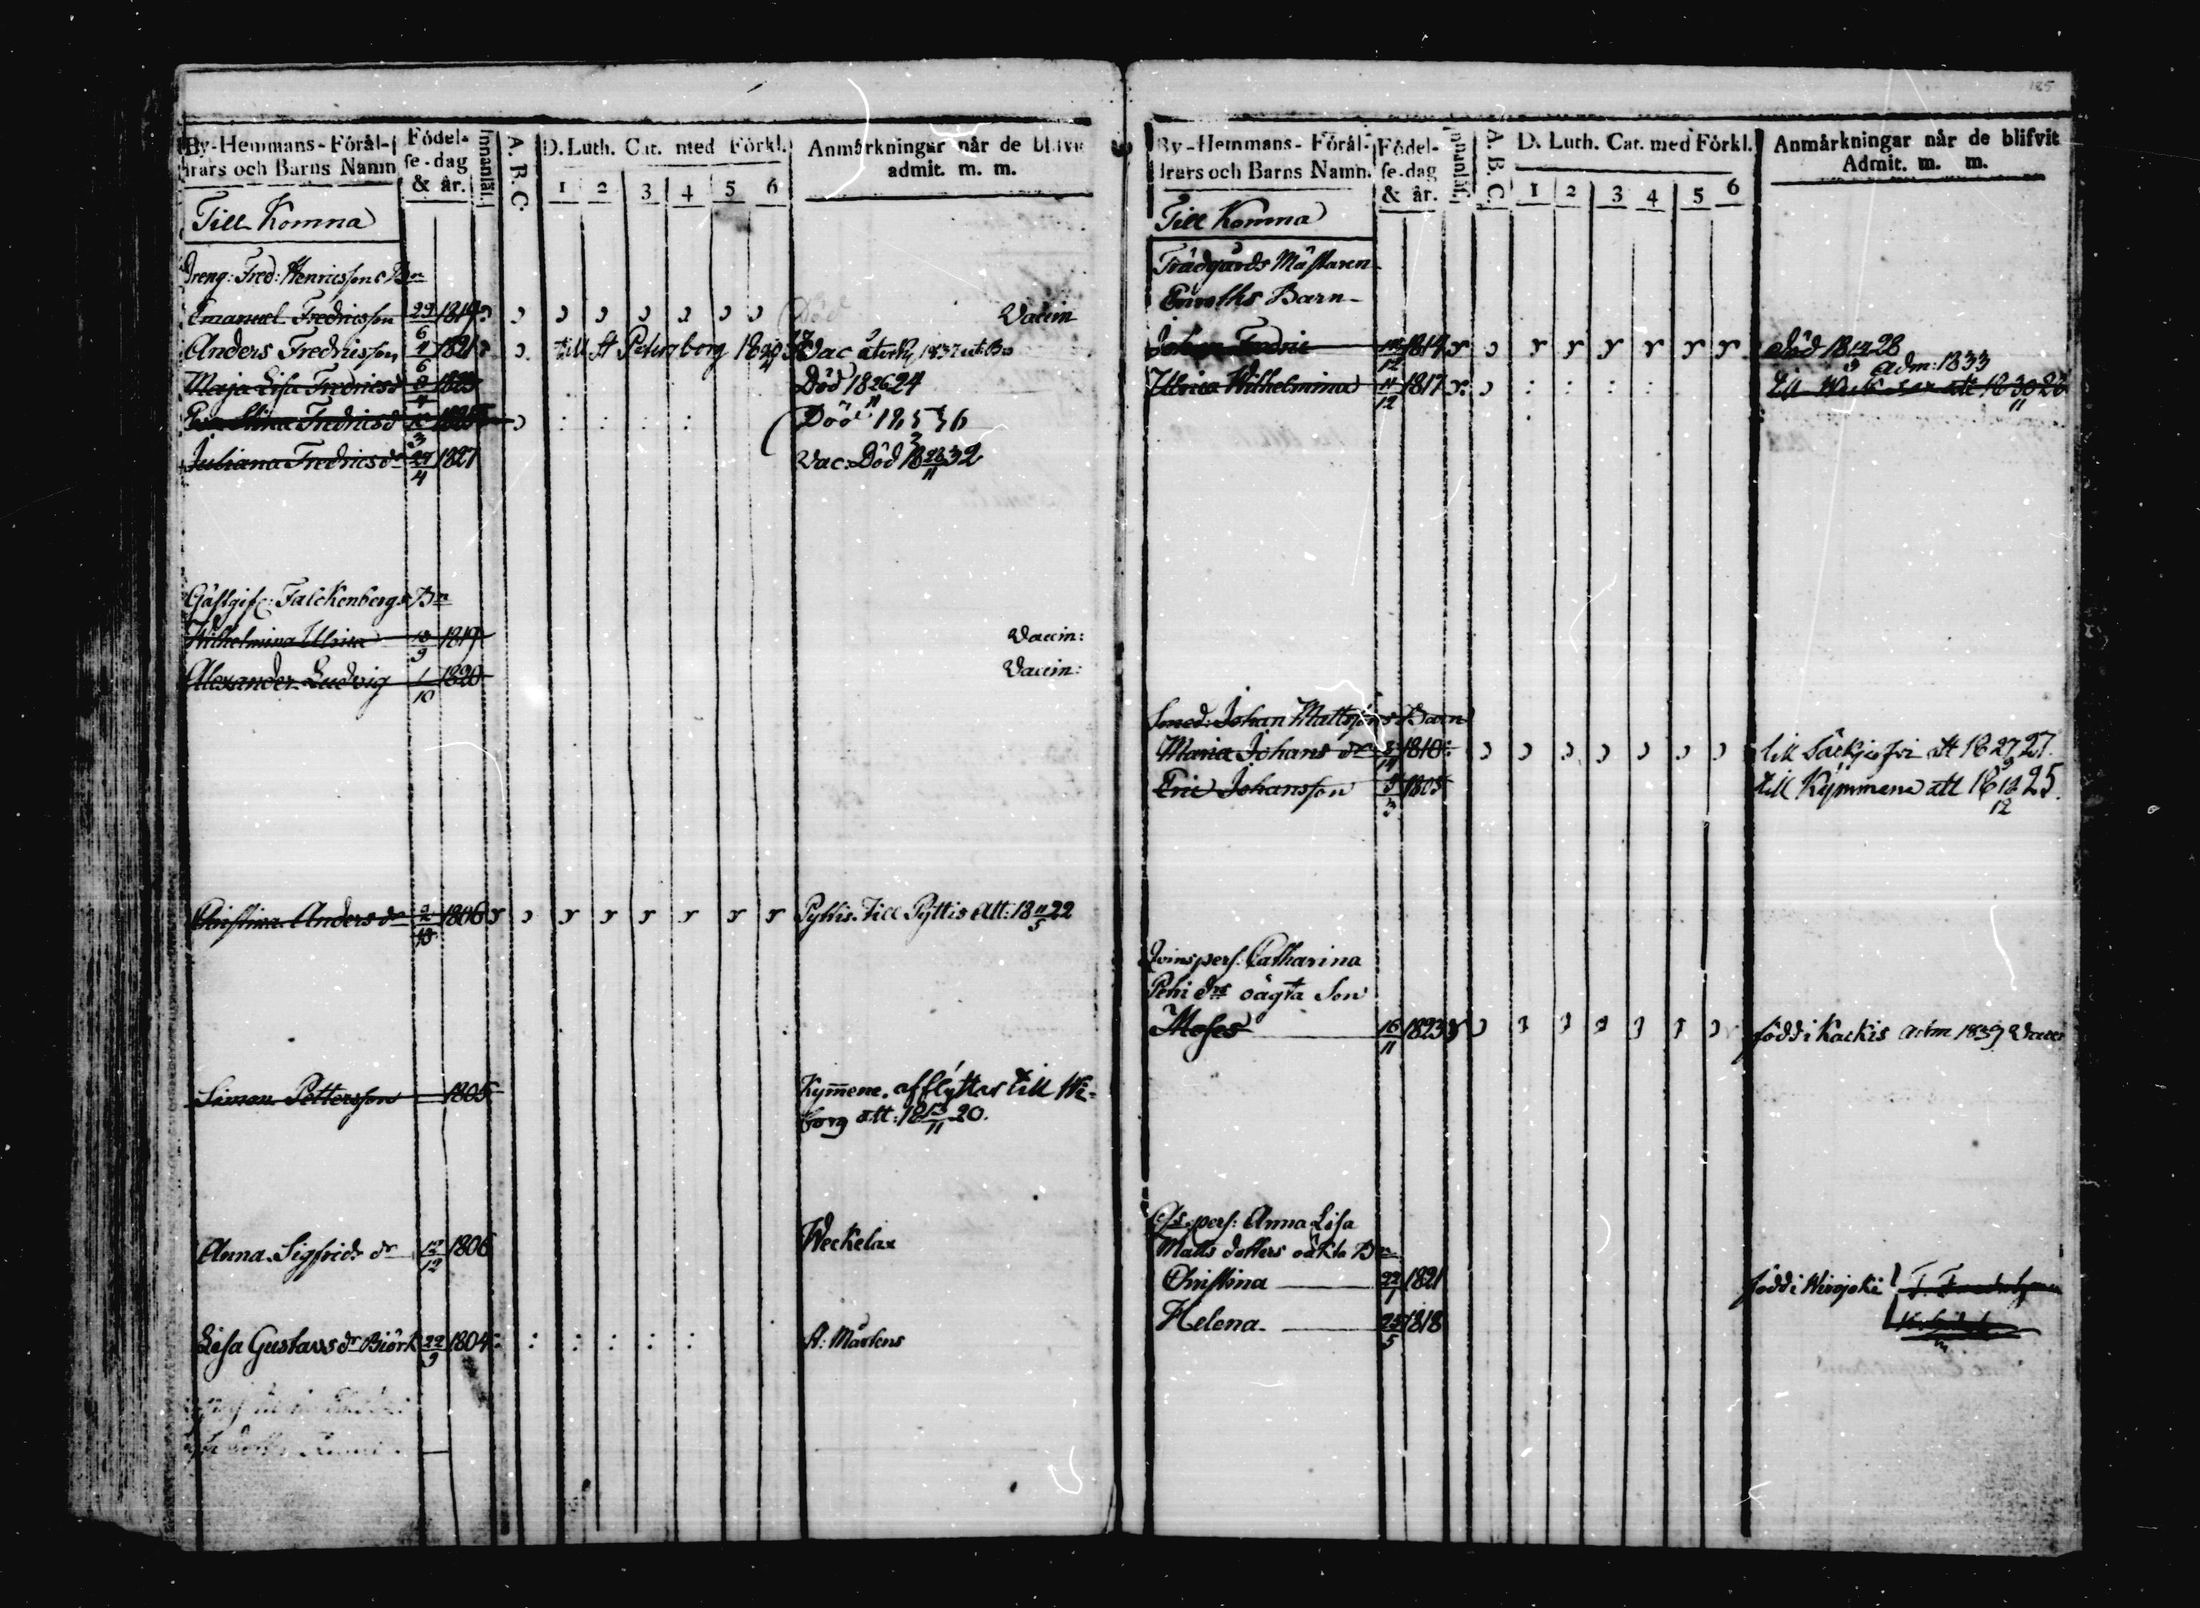 By-Hemmans-Förál-
drars och Barns Namn
Fódel-
se-dag
& år.
Innanläs.
A. B. C.
D. Luth. Cat. med Förkl.
1 2 3 4 5 6
Anmårkningar når de blifvit
admit. m. m.
Till Komna
Dreng: Fred: Henricssons Bn
Emanuel Fredricsson 29/6 1819 Vaccin
Anders Fredricsson 4/6 1821 till St Petersborg Vac återk: 1837
Maja Lisa Fredricsdr 1823 Död 1826/11 24
Stina Fredricsdr 1825 Död
Juliana Fredricsdr 27/4 1827 Vac. Död 18 28/11 32
Gästgifv: Falckenbergs Bn
Wilhelmina Ulrica 18/9 1819 Vaccin:
Alexander Ludvig 1/10 1820 Vaccin:
Christina Anders dr 2/10 1806 Pyttis. Till Pyttis Att: 18 11/5 22
Simon Pettersson 1805 Kymene. afflyttar till Wi-
borg att: 18 13/11 20.
Anna Sigfrids dr 12/12 1806 Weckelax
Lisa Gustavs dr Biörk 22/9 1804 St: Mårtens
185
By-Hemmans-Förál-
drars och Barns Namn.
Fódel-
se-dag
& år.
Innanläs.
A. B. C.
D. Luth. Cat. med Fórkl.
1 2 3 4 5 6
Anmårkningar når de blifvit
Admit. m. m.
Till Komna
Trädgårds Mästaren
Barn
Johan Fredric 1814 Död 18 14/3 28
adm: 1833
Ulrica Wilhelmina 11/12 1817 till att 18 30/11 28
Smed: Johan Mattssons Barn
Maria Johans dr 1810 till Säckjerfvi att 18 27/9 27.
Eric Johansson 9/3 1805 till Kymmene att 18 18/12 25.
Qvinspers. Catharina
drs oägta Son
Moses 16/11 1823 född i Kackis adm 1839
pers: Anna Lisa
Matts dotters oäkta Bn
Christina 22/1 1821 född i Wirojoki
Helena 25/5 1818